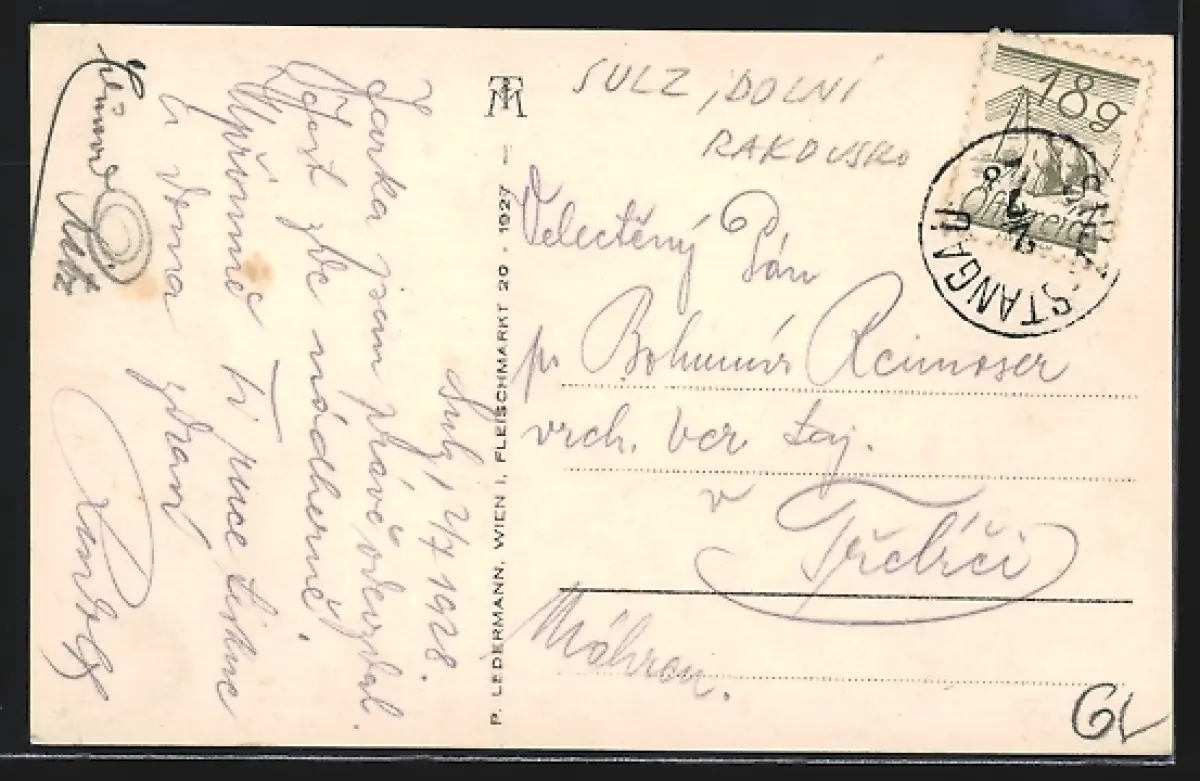 SULZ, DOLNÍ
RAKOUSKO
18g
Österreich
STANGAU
Velectěný Pán
p. Bohumír Reimoser
vrch. ber taj.
v Třebíči
Mähren.
P. LEDERMANN, WIEN I, FLEISCHMARKT 20 - 1927 —
Sulz, 2/7 1928.
jsem právě odevzdal.
jest zde nádherně.
Upřímně Ti ruce tiskne
a doma zdraví
GL